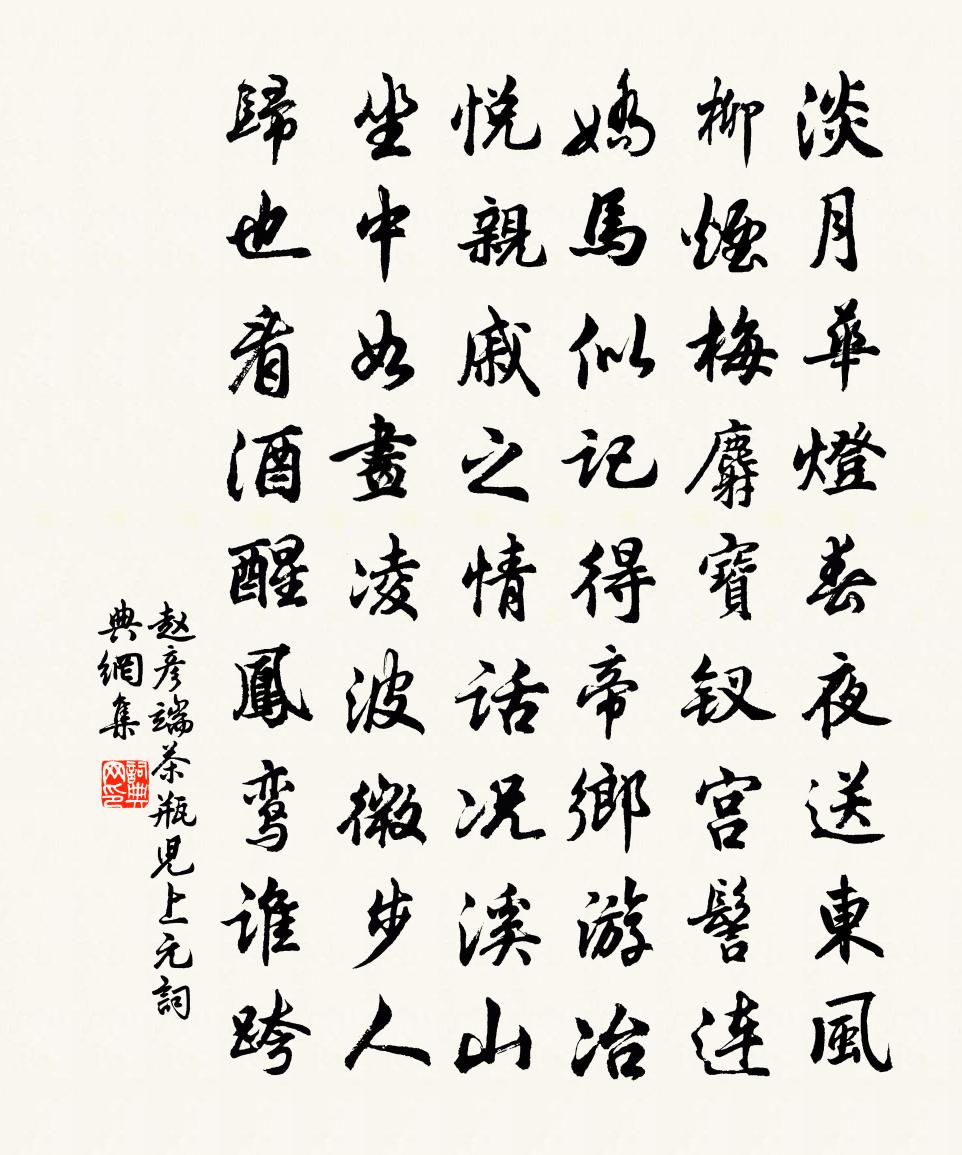 淡月華燈春夜送東風
柳煙梅麝寶釵宮髻連
嬌馬似記得帝鄉游冶
悦親戚之情話况溪山
坐中如畫凌波微步人
歸也看酒醒鳳鸾谁跨
赵彦端茶瓶児上元詞
典網集
詞典